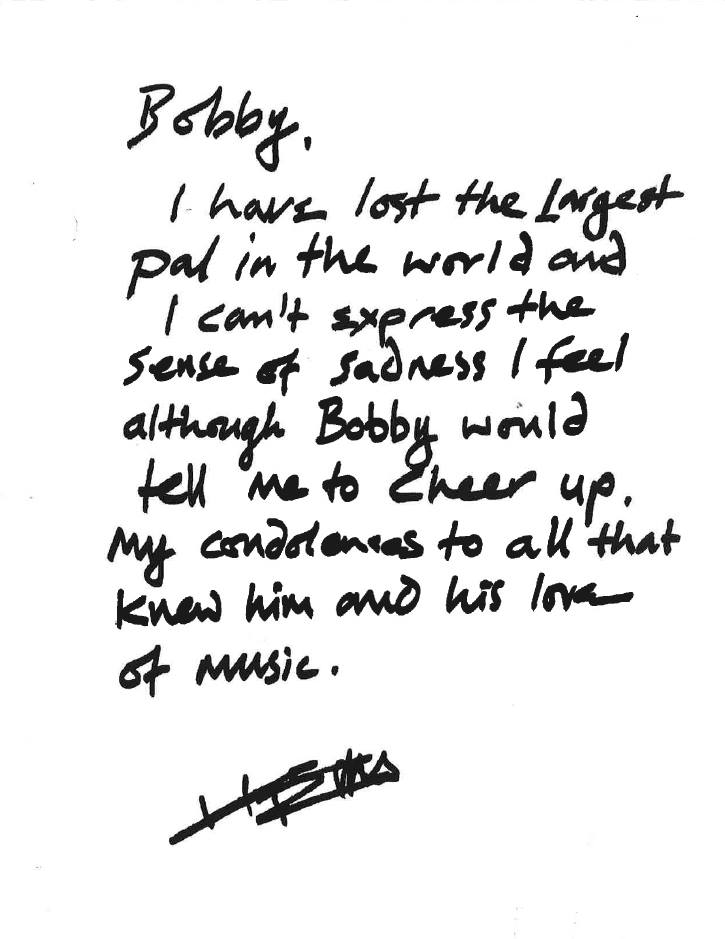 Bobby,
I have lost the Largest
pal in the world and
I can't express the
sense of sadness I feel
although Bobby would
tell me to cheer up.
My condolences to all that
knew him and his love
of music.